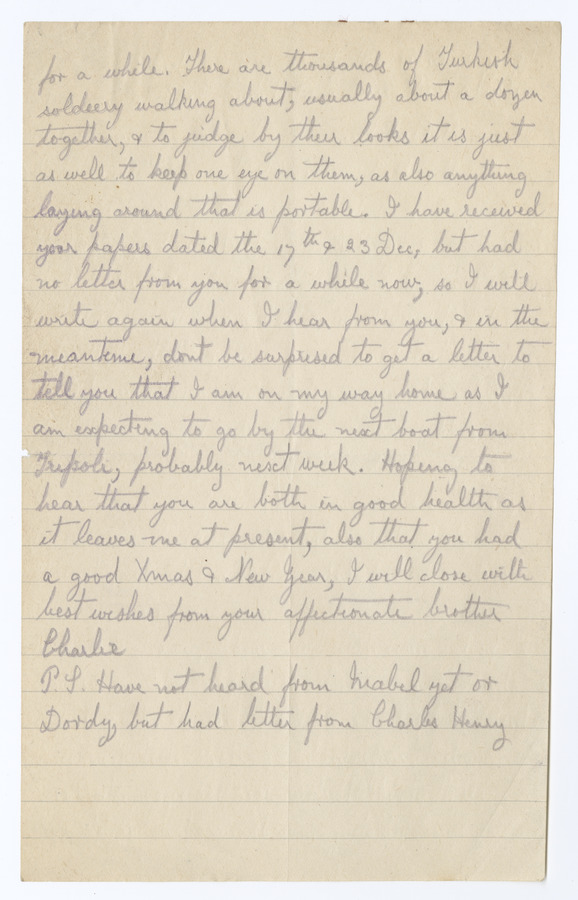 for a while. There are thousands of Turkish
soldeery walking about, usually about a dozen
together, & to judge by their looks it is just
as well to keep one eye on them, as also anything
laying around that is portable. I have received
your papers dated the 17th & 23 Dec, but had
no letter from you for a while now, so I will
write again when I hear from you, & in the
meantime, dont be surprised to get a letter to
tell you that I am on my way home as I
am expecting to go by the next boat from
Tripoli, probably next week. Hoping to
hear that you are both in good health as
it leaves me at present, also that you had
a good Xmas & New Year, I will close with
best wishes from your affectionate brother
Charlie
P.S. Have not heard from Mabel yet or
Dordy, but had letter from Charles Henry